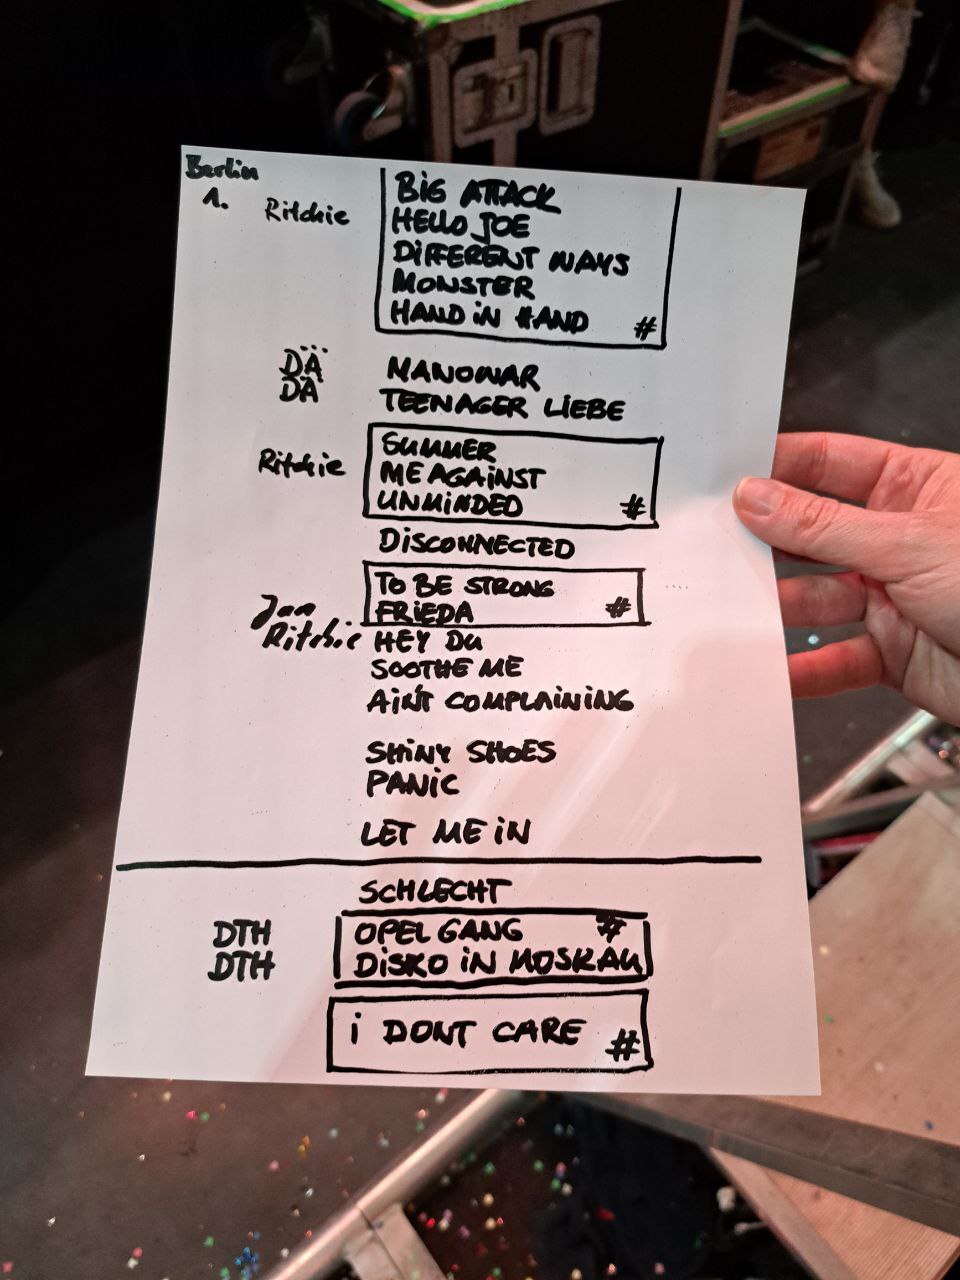 Berlin
1. Ritchie BIG ATTACK
HELLO JOE
DIFFERENT WAYS
MONSTER
HAND IN HAND #
DÄ MANOWAR
DÄ TEENAGER LIEBE
SUMMER
Ritchie ME AGAINST
UNMINDED #
DISCONNECTED
TO BE STRONG
Jan FRIEDA #
Ritchie HEY DU
SOOTHE ME
AIN'T COMPLAINING
SHINY SHOES
PANIC
LET ME IN
SCHLECHT
DTH OPEL GANG #
DTH DISKO IN MOSKAU
I DONT CARE #